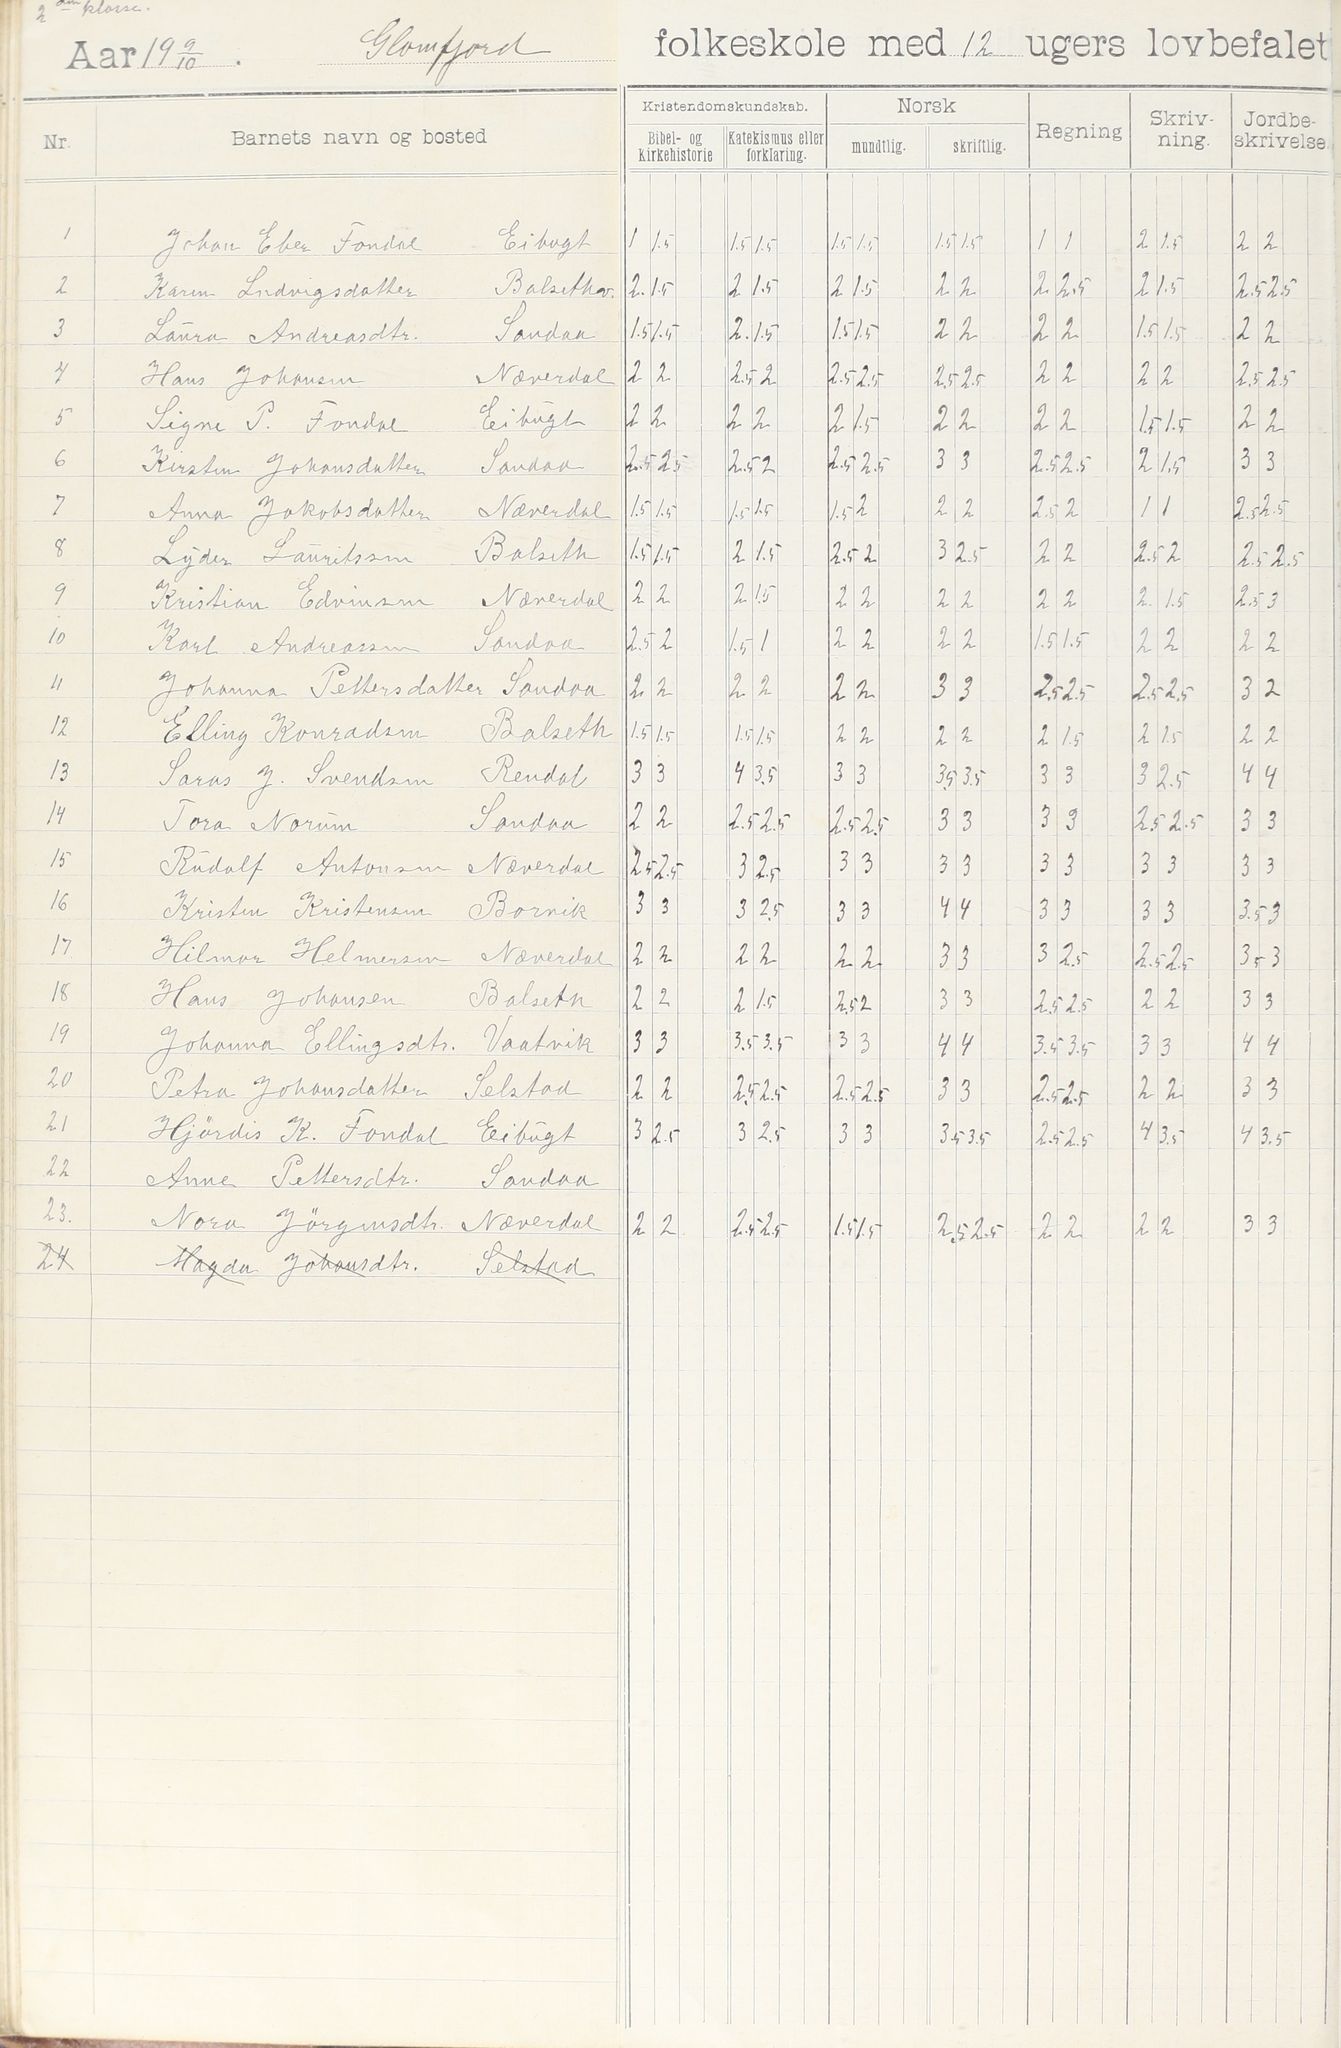 2 den klasse.
Aar 19 9/10. Glomfjord folkeskole med 12 ugers lovbefalet
Kristendomskundskab. Norsk Regning Skriv-ning. Jordbe-skrivelse.
Nr. Barnets navn og bosted Bibel- og kirkehistorie Katekismus eller forklaring. mundtlig. skriftlig.
1 Johan Eber Fondal Eibugt 1 1.5 1.5 1.5 1.5 1.5 1.5 1.5 1 1 2 1.5 2 2
2 Karen Ludvigsdatter Balsethv. 2. 1.5 2 1.5 2 1.5 2 2 2. 2.5 2 1.5 2.5 2.5
3 Laura Andreasdtr. Sandaa 1.5 1.5 2. 1.5 1.5 1.5 2 2 2 2 1.5 1.5 2 2
4 Hans Johansen Næverdal 2 2 2.5 2 2.5 2.5 2.5 2.5 2 2 2 2 2.5 2.5
5 Signe P. Fondal Eibugt 2 2 2 2 2 1.5 2 2 2 2 1.5 1.5 2 2
6 Kirsten Johansdatter Sandaa 2.5 2.5 2.5 2 2.5 2.5 3 3 2.5 2.5 2 1.5 3 3
7 Anna Jakobsdatter Næverdal 1.5 1.5 1.5 1.5 1.5 2 2 2 2.5 2 1 1 2.5 2.5
8 Lyder Lauritssen Balseth 1.5 1.5 2 1.5 2.5 2 3 2.5 2 2 2.5 2 2.5 2.5
9 Kristian Edvinsen Næverdal 2 2 2 1.5 2 2 2 2 2 2 2. 1.5 2.5 3
10 Karl Andreassen Sandaa 2.5 2 1.5 1 2 2 2 2 1.5 1.5 2 2 2 2
11 Johanna Pettersdatter Sandaa 2 2 2 2 2 2 3 3 2.5 2.5 2.5 2.5 3 2
12 Elling Konradsen Balseth 1.5 1.5 1.5 1.5 2 2 2 2 2 1.5 2 1.5 2 2
13 Saras J. Svendsen Rendal 3 3 4 3.5 3 3 3.5 3.5 3 3 3 2.5 4 4
14 Tora Norum Sandaa 2 2 2.5 2.5 2.5 2.5 3 3 3 3 2.5 2.5 3 3
15 Rudolf Antonsen Næverdal 2.5 2.5 3 2.5 3 3 3 3 3 3 3 3 3 3
16 Kristen Kristensen Bornik 3 3 3 2.5 3 3 4 4 3 3 3 3 3.5 3
17 Hilmar Helmersen Næverdal 2 2 2 2 2 2 3 3 3 2.5 2.5 2.5 3.5 3
18 Hans Johansen Balseth 2 2 2 1.5 2.5 2 3 3 2.5 2.5 2 2 3 3
19 Johanna Ellingsdtr. Vaatvik 3 3 3.5 3.5 3 3 4 4 3.5 3.5 3 3 4 4
20 Petra Johansdatter Selstad 2 2 2.5 2.5 2.5 2.5 3 3 2.5 2.5 2 2 3 3
21 Hjördis K. Fondal Eibugt 3 2.5 3 2.5 3 3 3.5 3.5 2.5 2.5 4 3.5 4 3.5
22 Anne Pettersdtr. Sandaa
23. Nora Jörgensdtr. Næverdal 2 2 2.5 2.5 1.5 1.5 2.5 2.5 2 2 2 2 3 3
24 Magda Johansdtr. Selstad